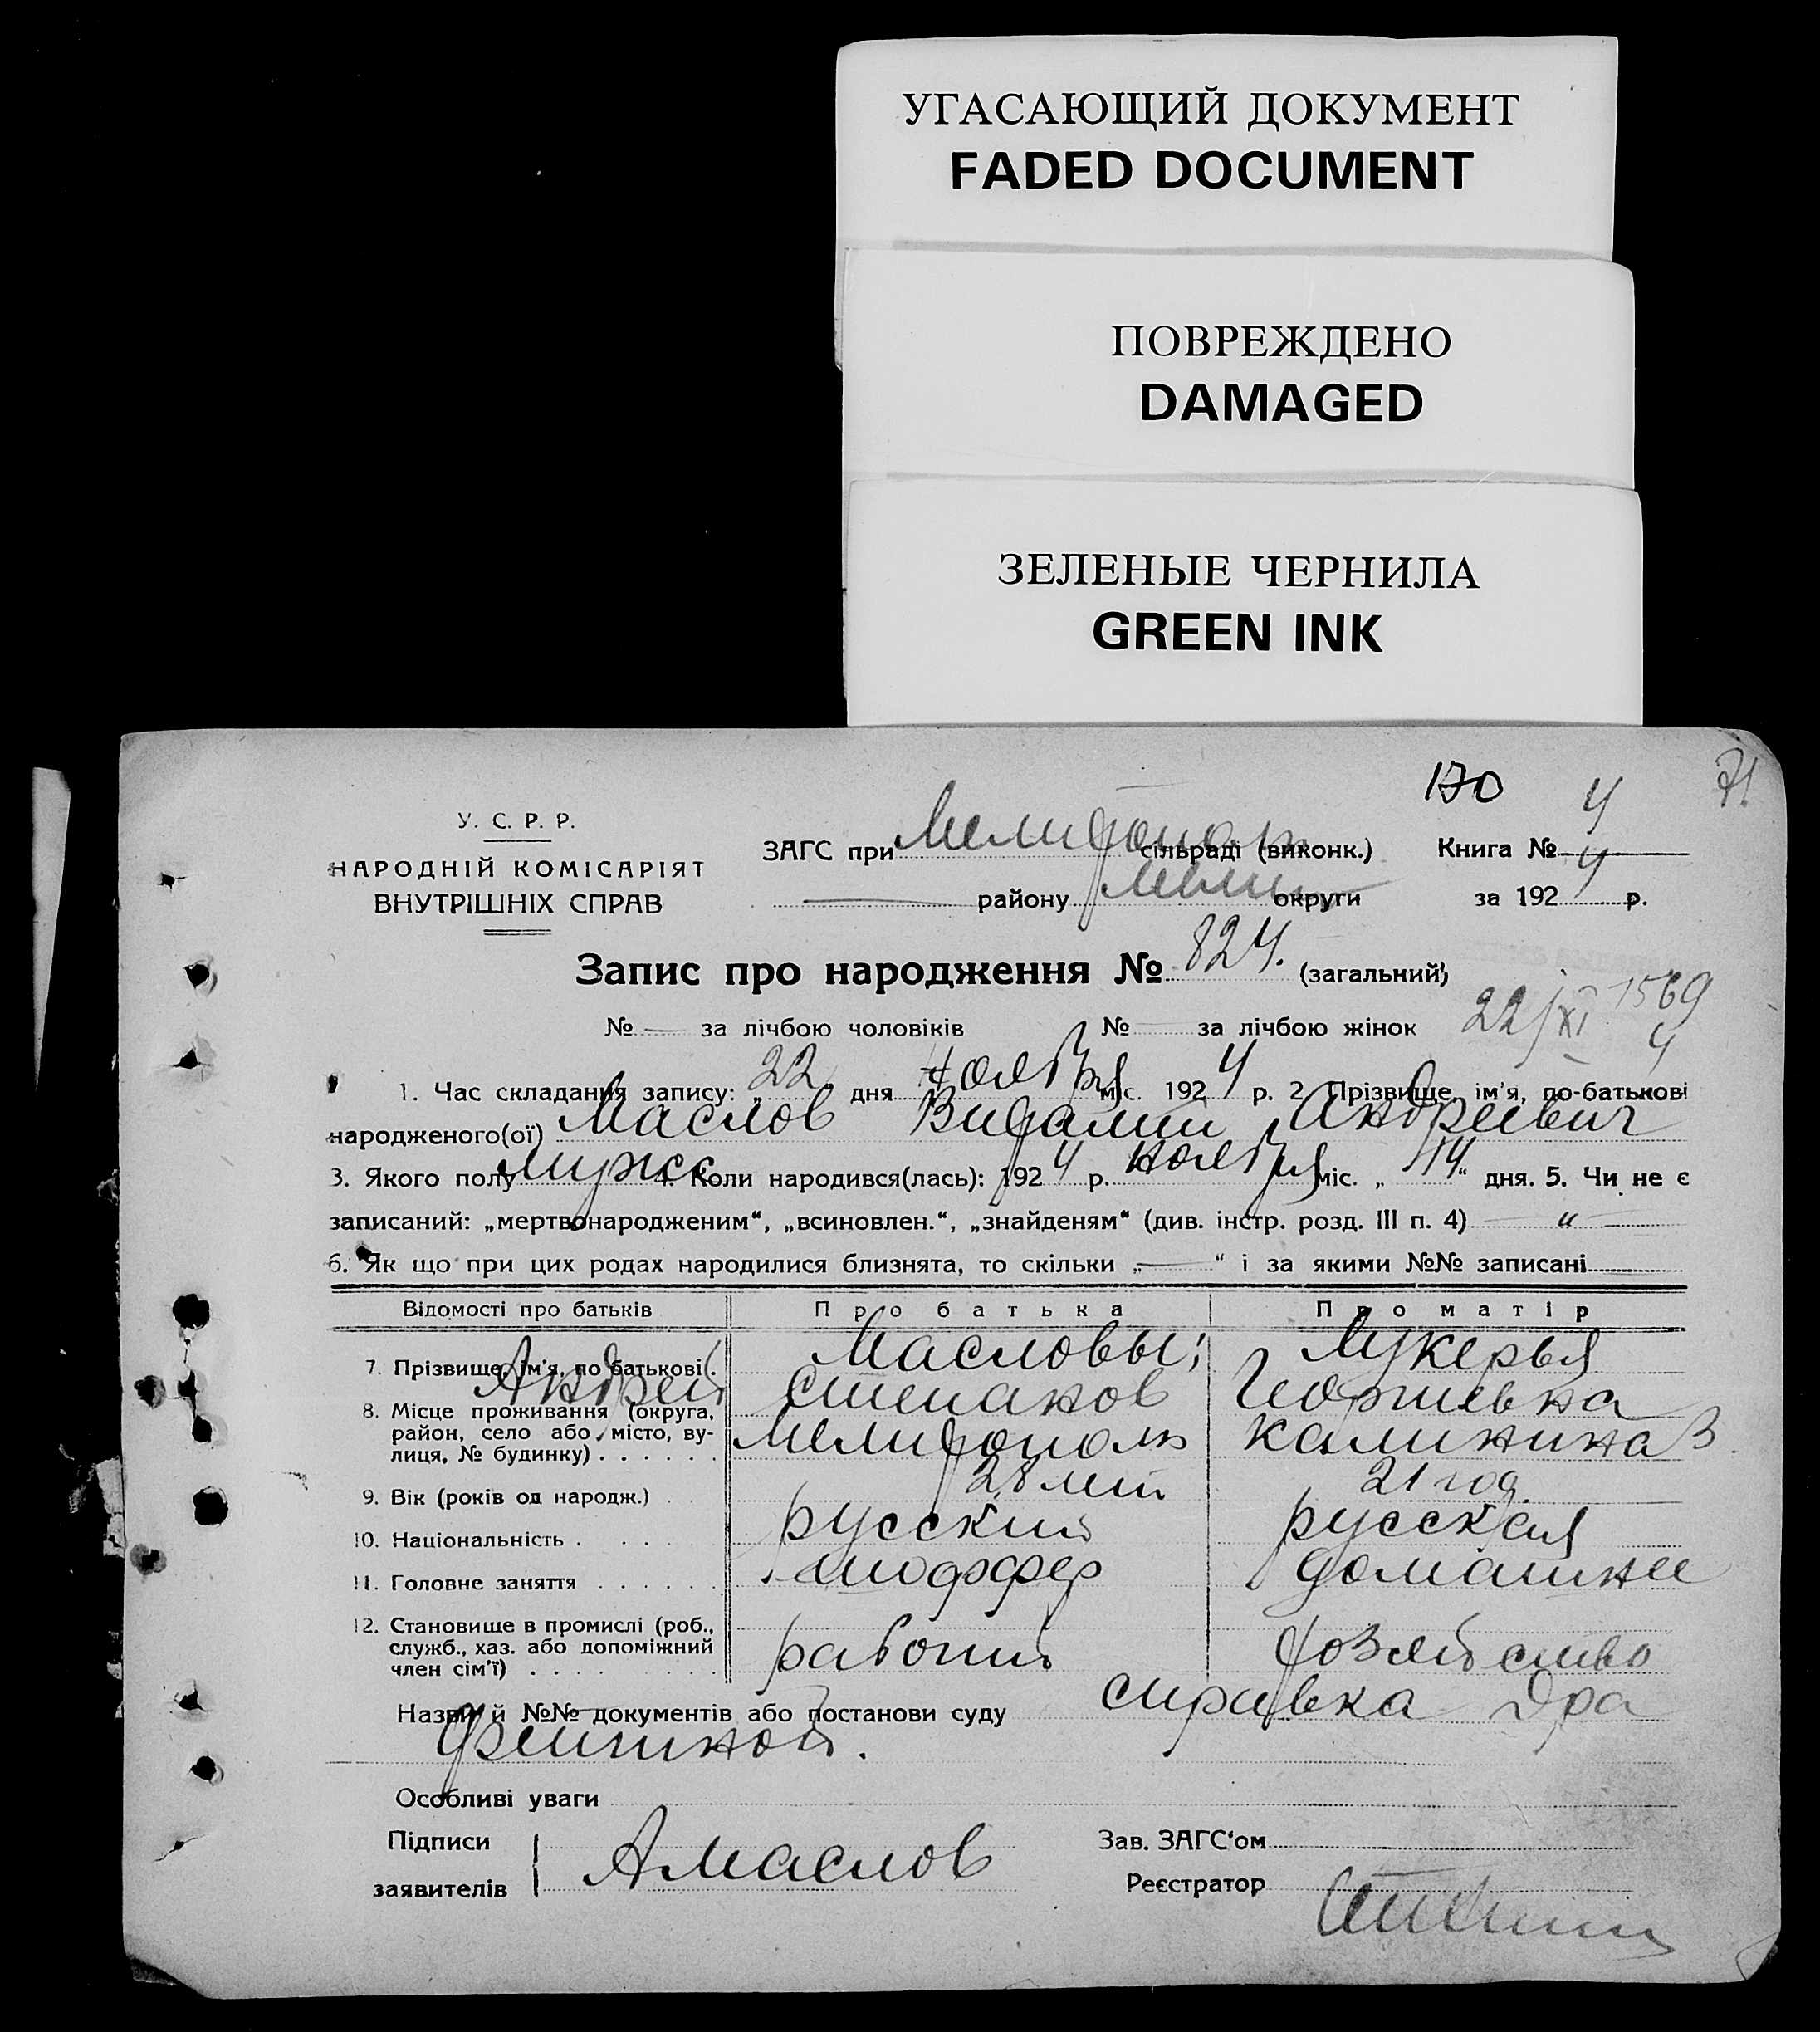 УГАСАЮЩИЙ ДОКУМЕНТ
FADED DOCUMENT
ПОВРЕЖДЕНО
DAMAGED
ЗЕЛЕНЫЕ ЧЕРНИЛА
GREEN INK
130 71
У. С. Р. Р.
НАРОДНІЙ КОМІСАРІЯТ
ВНУТРІШНІХ СПРАВ
ЗАГС при Мелитополь сільраді (виконк.) Книга № 4
району округи за 192 4 р.
Запис про народження № 824. (загальний)
№ — за лічбою чоловіків № за лічбою жінок 22/XI 1569
4
1. Час складання запису: „ 22 " дня Ноября міс. 192 4 р. 2 Прізвище, ім'я, по-батькові
народженого(ої) Маслов Виталий Андреевич
3. Якого полу мужс 4. Коли народився(лась): 192 4 р. ноября міс. „ 14 " дня. 5. Чи не є
записаний: „мертвонародженим", „всиновлен.", „знайденям" (див. інстр. розд. III п. 4) — " —
6. Як що при цих родах народилися близнята, то скільки „ — " і за якими №№ записані
Відомості про батьків Про батька Про матір
7. Прізвище, ім'я, по батькові. Масловы; Лукерья
Андрей Степанов Георгиевна
8. Місце проживання (округа, район, село або місто, вулиця, № будинку) . . . . . . Мелитополь Калинина 3
9. Вік (років од народж.) . 28 лет 21 год.
10. Національність . . . . русский русская
11. Головне заняття . . . . . . шоффер домашнее
12. Становище в промислі (роб., служб., хаз. або допоміжний член сім'ї) . . . . . рабочий хозяйство
Назви й №№ документів або постанови суду справка Дра
Особливі уваги
Підписи
заявителів АМаслов
Зав. ЗАГС'ом
Реєстратор